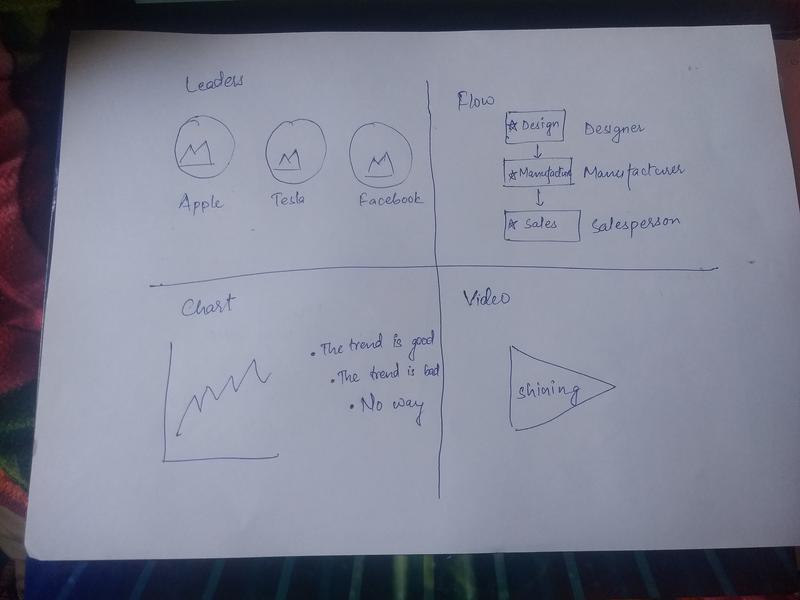 Leaders
Apple Tesla Facebook
Flow
☆ Design Designer
☆ Manufacture Manufacturer
☆ Sales Salesperson
Chart
• The trend is good
• The trend is bad
• No way
Video
shining